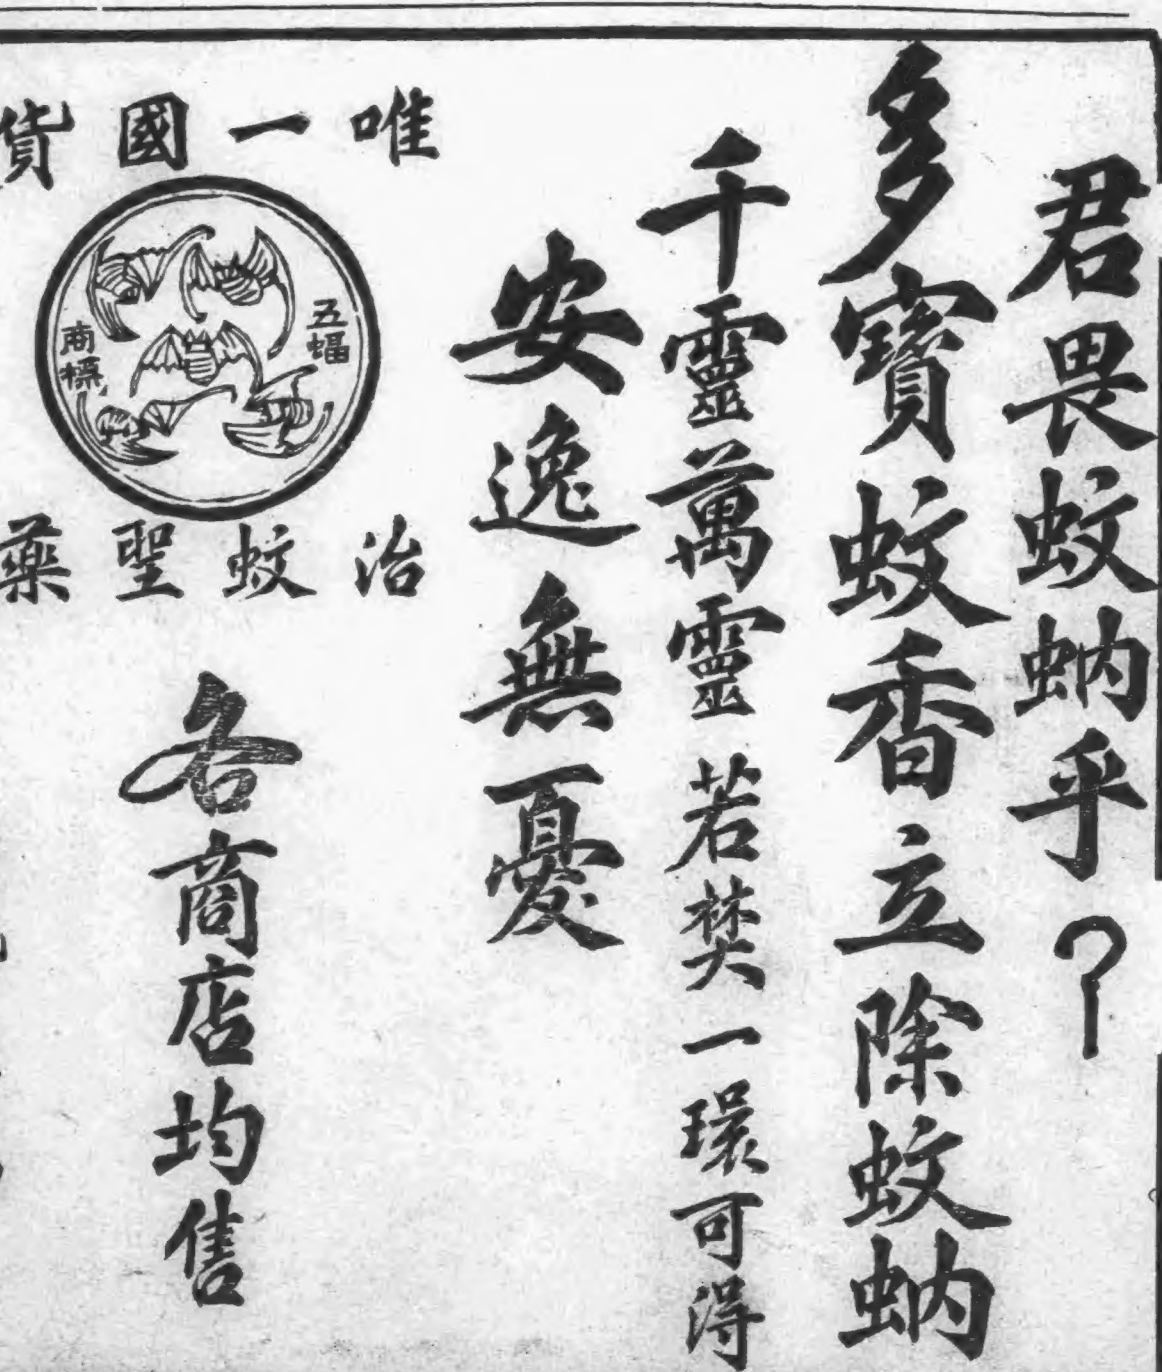 君畏蚊蚋乎?
多寶蚊香立除蚊蚋
千靈萬靈若焚一環可得
安逸無憂
唯一國貨
五蝠
商標
治蚊聖藥
各商店均售